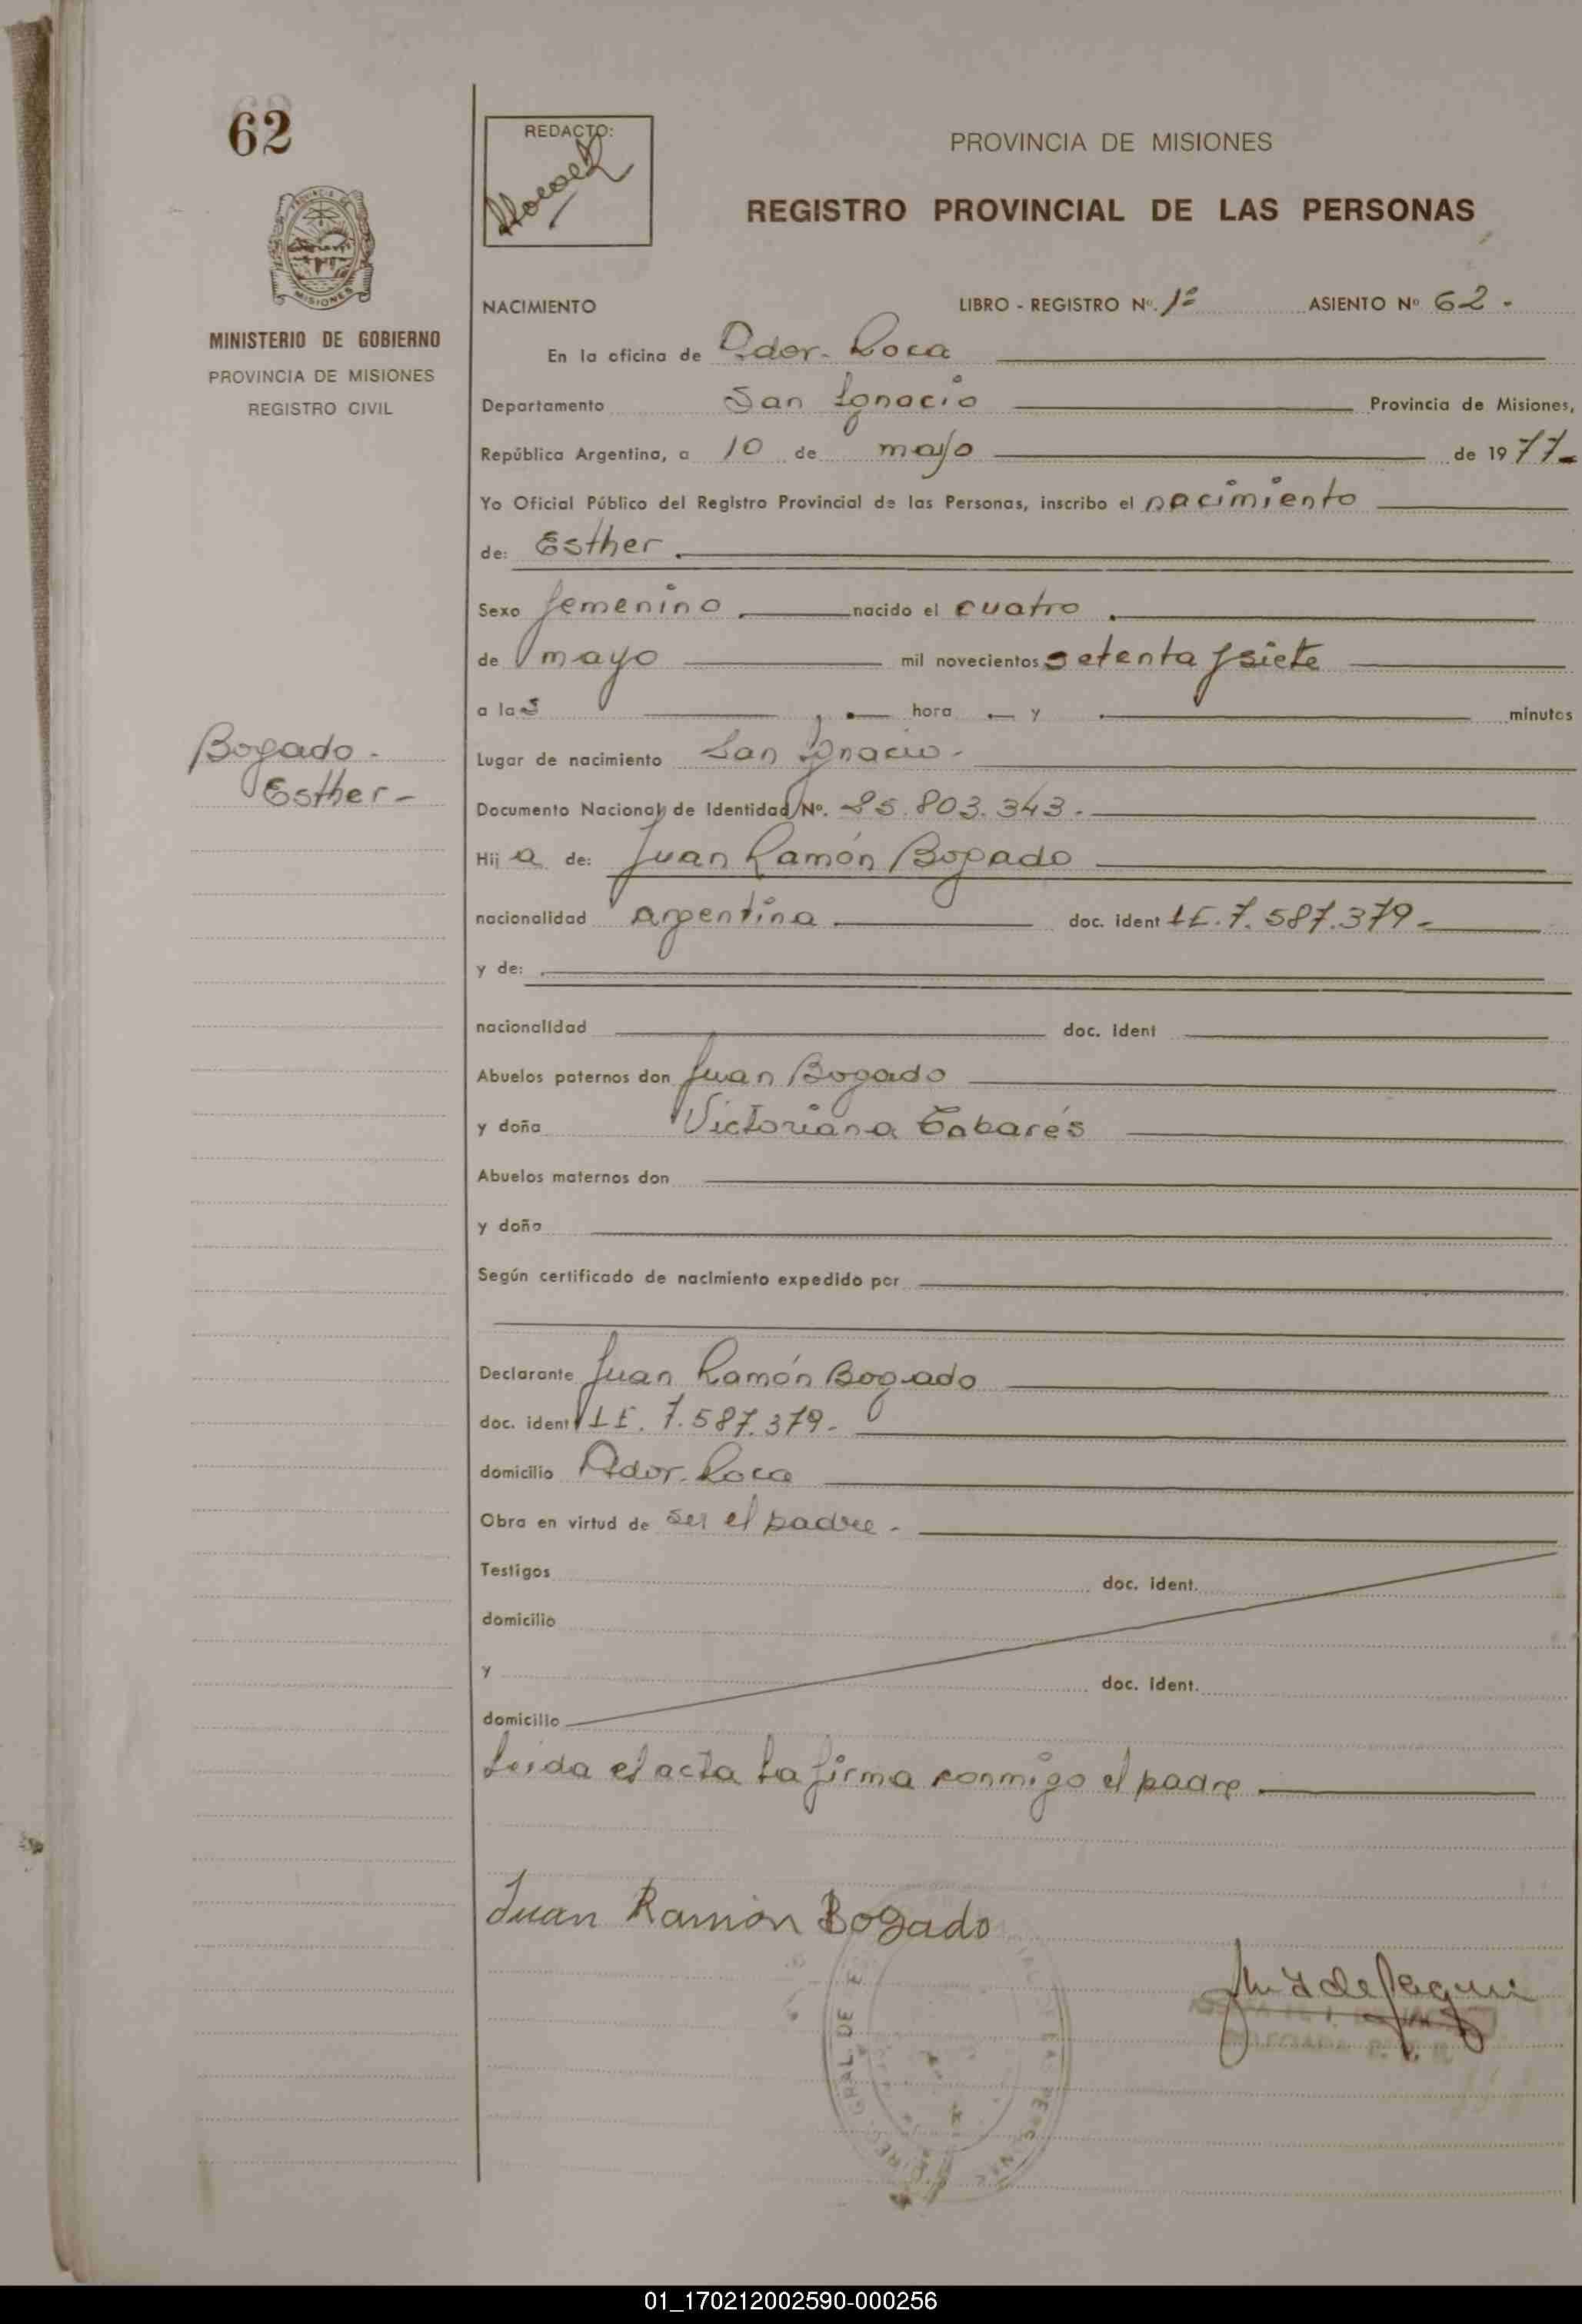 62
REDACTO:
PROVINCIA DE MISIONES
REGISTRO PROVINCIAL DE LAS PERSONAS
MISIONES
MINISTERIO DE GOBIERNO
PROVINCIA DE MISIONES
REGISTRO CIVIL
NACIMIENTO LIBRO - REGISTRO Nº. 1º ASIENTO Nº 62 -
En la oficina de Gdor. Roca
Departamento San Ignacio Provincia de Misiones,
República Argentina, a 10 de mayo de 1977-
Yo Oficial Público del Registro Provincial de las Personas, inscribo el nacimiento
de: Esther.
Sexo femenino. nacido el cuatro.
de mayo mil novecientos setenta y siete
a las hora y minutos
Bogado -
Esther -
Lugar de nacimiento San Ignacio -
Documento Nacional de Identidad Nº. 25.803.343.-
Hija de: Juan Ramón Bogado
nacionalidad argentina. doc. ident LE. 7.587.379-
y de:
nacionalidad doc. ident
Abuelos paternos don Juan Bogado
y doña Victoriana Tabarés
Abuelos maternos don
y doña
Según certificado de nacimiento expedido por
Declarante Juan Ramón Bogado
doc. ident LE. 7.587.379-
domicilio Gdor. Roca
Obra en virtud de ser el padre -
Testigos doc. ident.
domicilio
y doc. ident.
domicilio
Leida el acta la firma conmigo el padre.
Juan Ramón Bogado
01_170212002590-000256